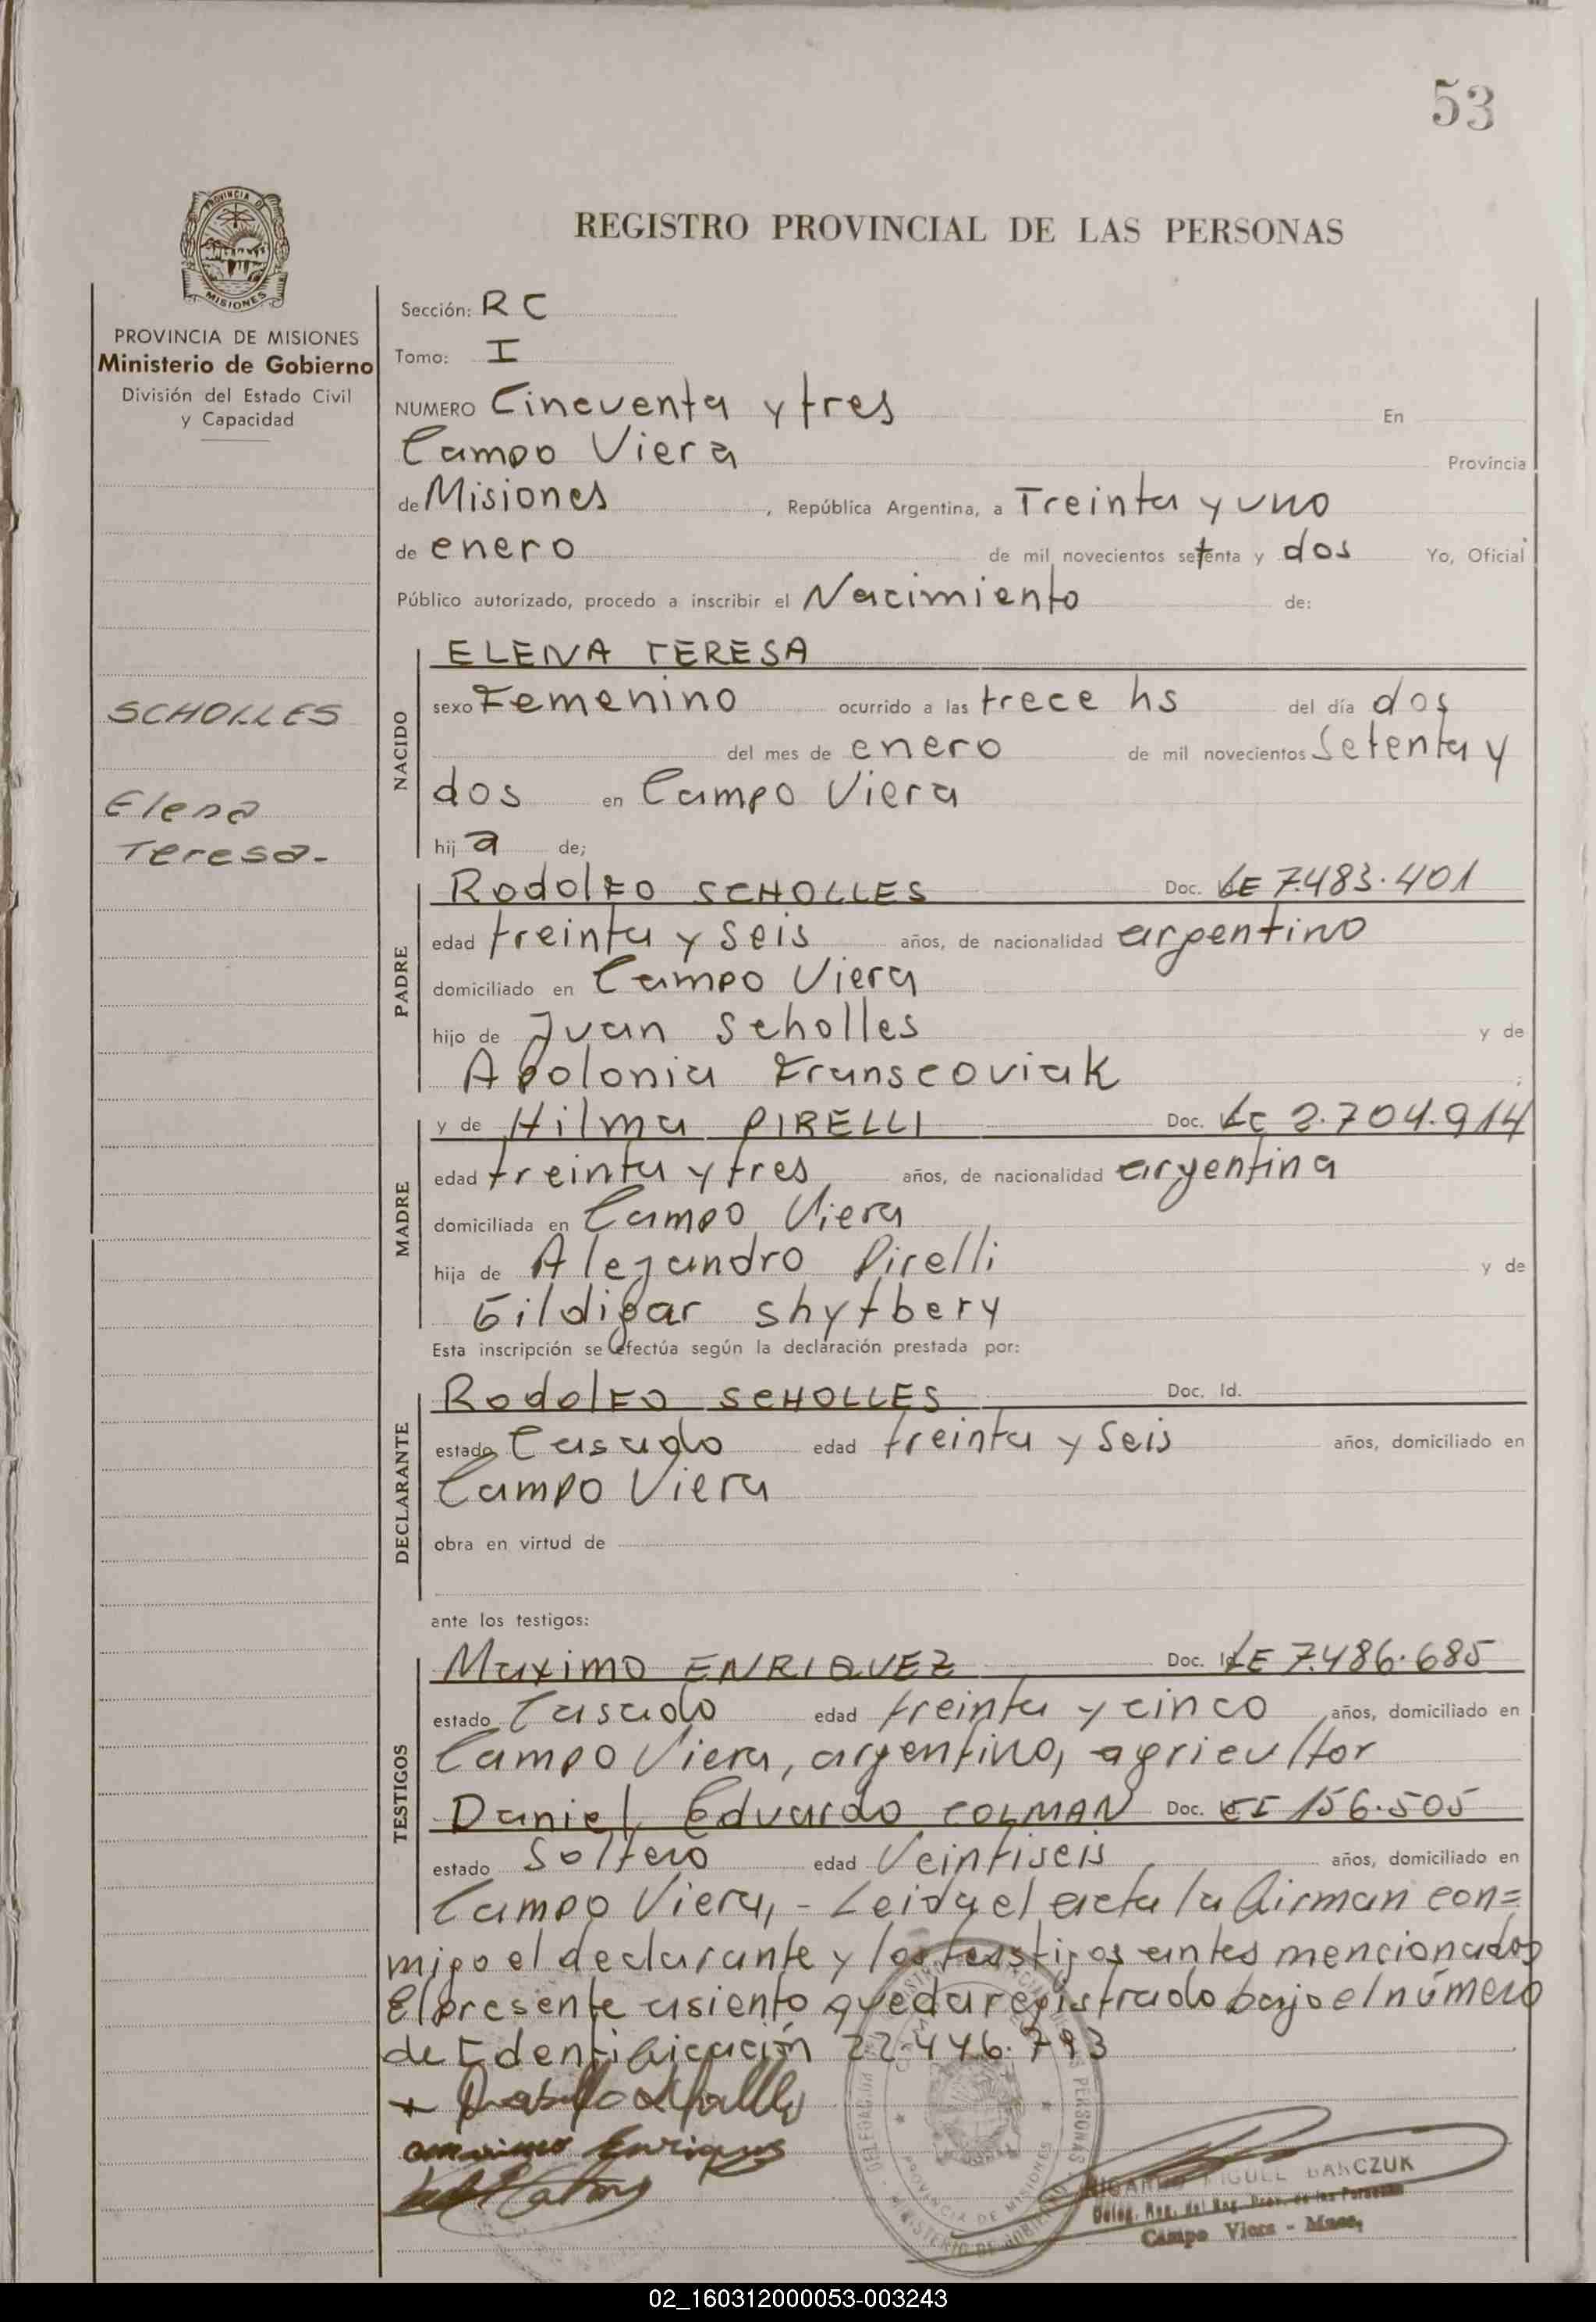 53
PROVINCIA DE
MISIONES
REGISTRO PROVINCIAL DE LAS PERSONAS
PROVINCIA DE MISIONES
Ministerio de Gobierno
División del Estado Civil
y Capacidad
SCHOLLES
Elena
Teresa-
Sección: RC
Tomo: I
NUMERO Cincuenta y tres En
Campo Viera Provincia
de Misiones, República Argentina, a Treinta y uno
de enero de mil novecientos setenta y dos Yo, Oficial
Público autorizado, procedo a inscribir el Nacimiento de:
NACIDO
ELENA TERESA
sexo Femenino ocurrido a las trece hs del día dos
del mes de enero de mil novecientos Setenta y
dos en Campo Viera
hija de;
PADRE
Rodolfo SCHOLLES Doc. LE 7.483.401
edad treinta y seis años, de nacionalidad argentino
domiciliado en Campo Viera
hijo de Juan Scholles y de
Apolonia Franscoviak ;
MADRE
y de Hilma PIRELLI Doc. LC 2.704.914
edad treinta y tres años, de nacionalidad argentina
domiciliada en Campo Viera
hija de Alejandro Pirelli y de
Gildigar Shytbery
Esta inscripción se efectúa según la declaración prestada por:
DECLARANTE
Rodolfo SCHOLLES Doc. Id.
estado Casado edad treinta y seis años, domiciliado en
Campo Viera
obra en virtud de
ante los testigos:
TESTIGOS
Maximo ENRIQUEZ Doc. Id. LE 7.486.685
estado Casado edad treinta y cinco años, domiciliado en
Campo Viera, argentino, agricultor
Daniel Eduardo COLMAN Doc. CI 156.505
estado Soltero edad Veintiseis años, domiciliado en
Campo Viera, - Leida el acta la firman con=
migo el declarante y los testigos antes mencionados
El presente asiento queda registrado bajo el número
de Identificación 22.446.793
Maximo Enriquez
PROVINCIA DE MISIONES
MINISTERIO DE GOBIERNO
RICARDO MIGUEL BARCZUK
Deleg. Reg. del Reg. Prov. de las Personas
Campo Viera - Mnes,
02_160312000053-003243